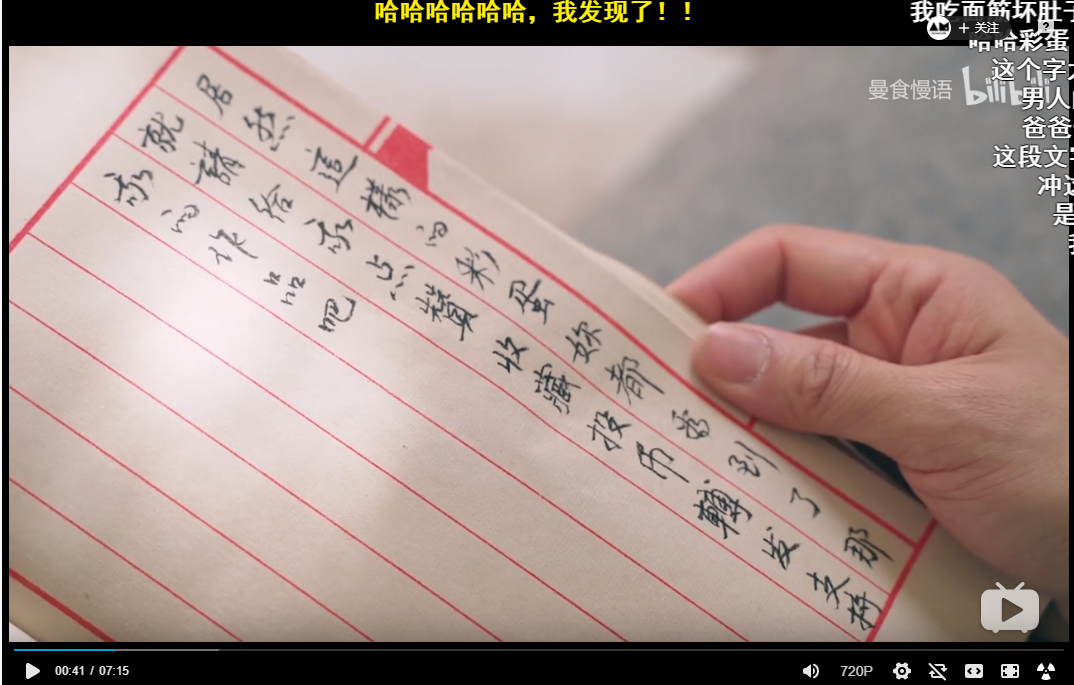 哈哈哈哈哈哈，我发现了！！
我吃面筋坏肚子
+ 关注
哈哈彩蛋
这个字
曼食慢语
bilibili
男人
爸爸
这段文字
冲这
是
居然這樣的彩蛋妳都看到了那
就請给我点贊收藏投币、轉发支持
我的作品吧
00:41 / 07:15
720P